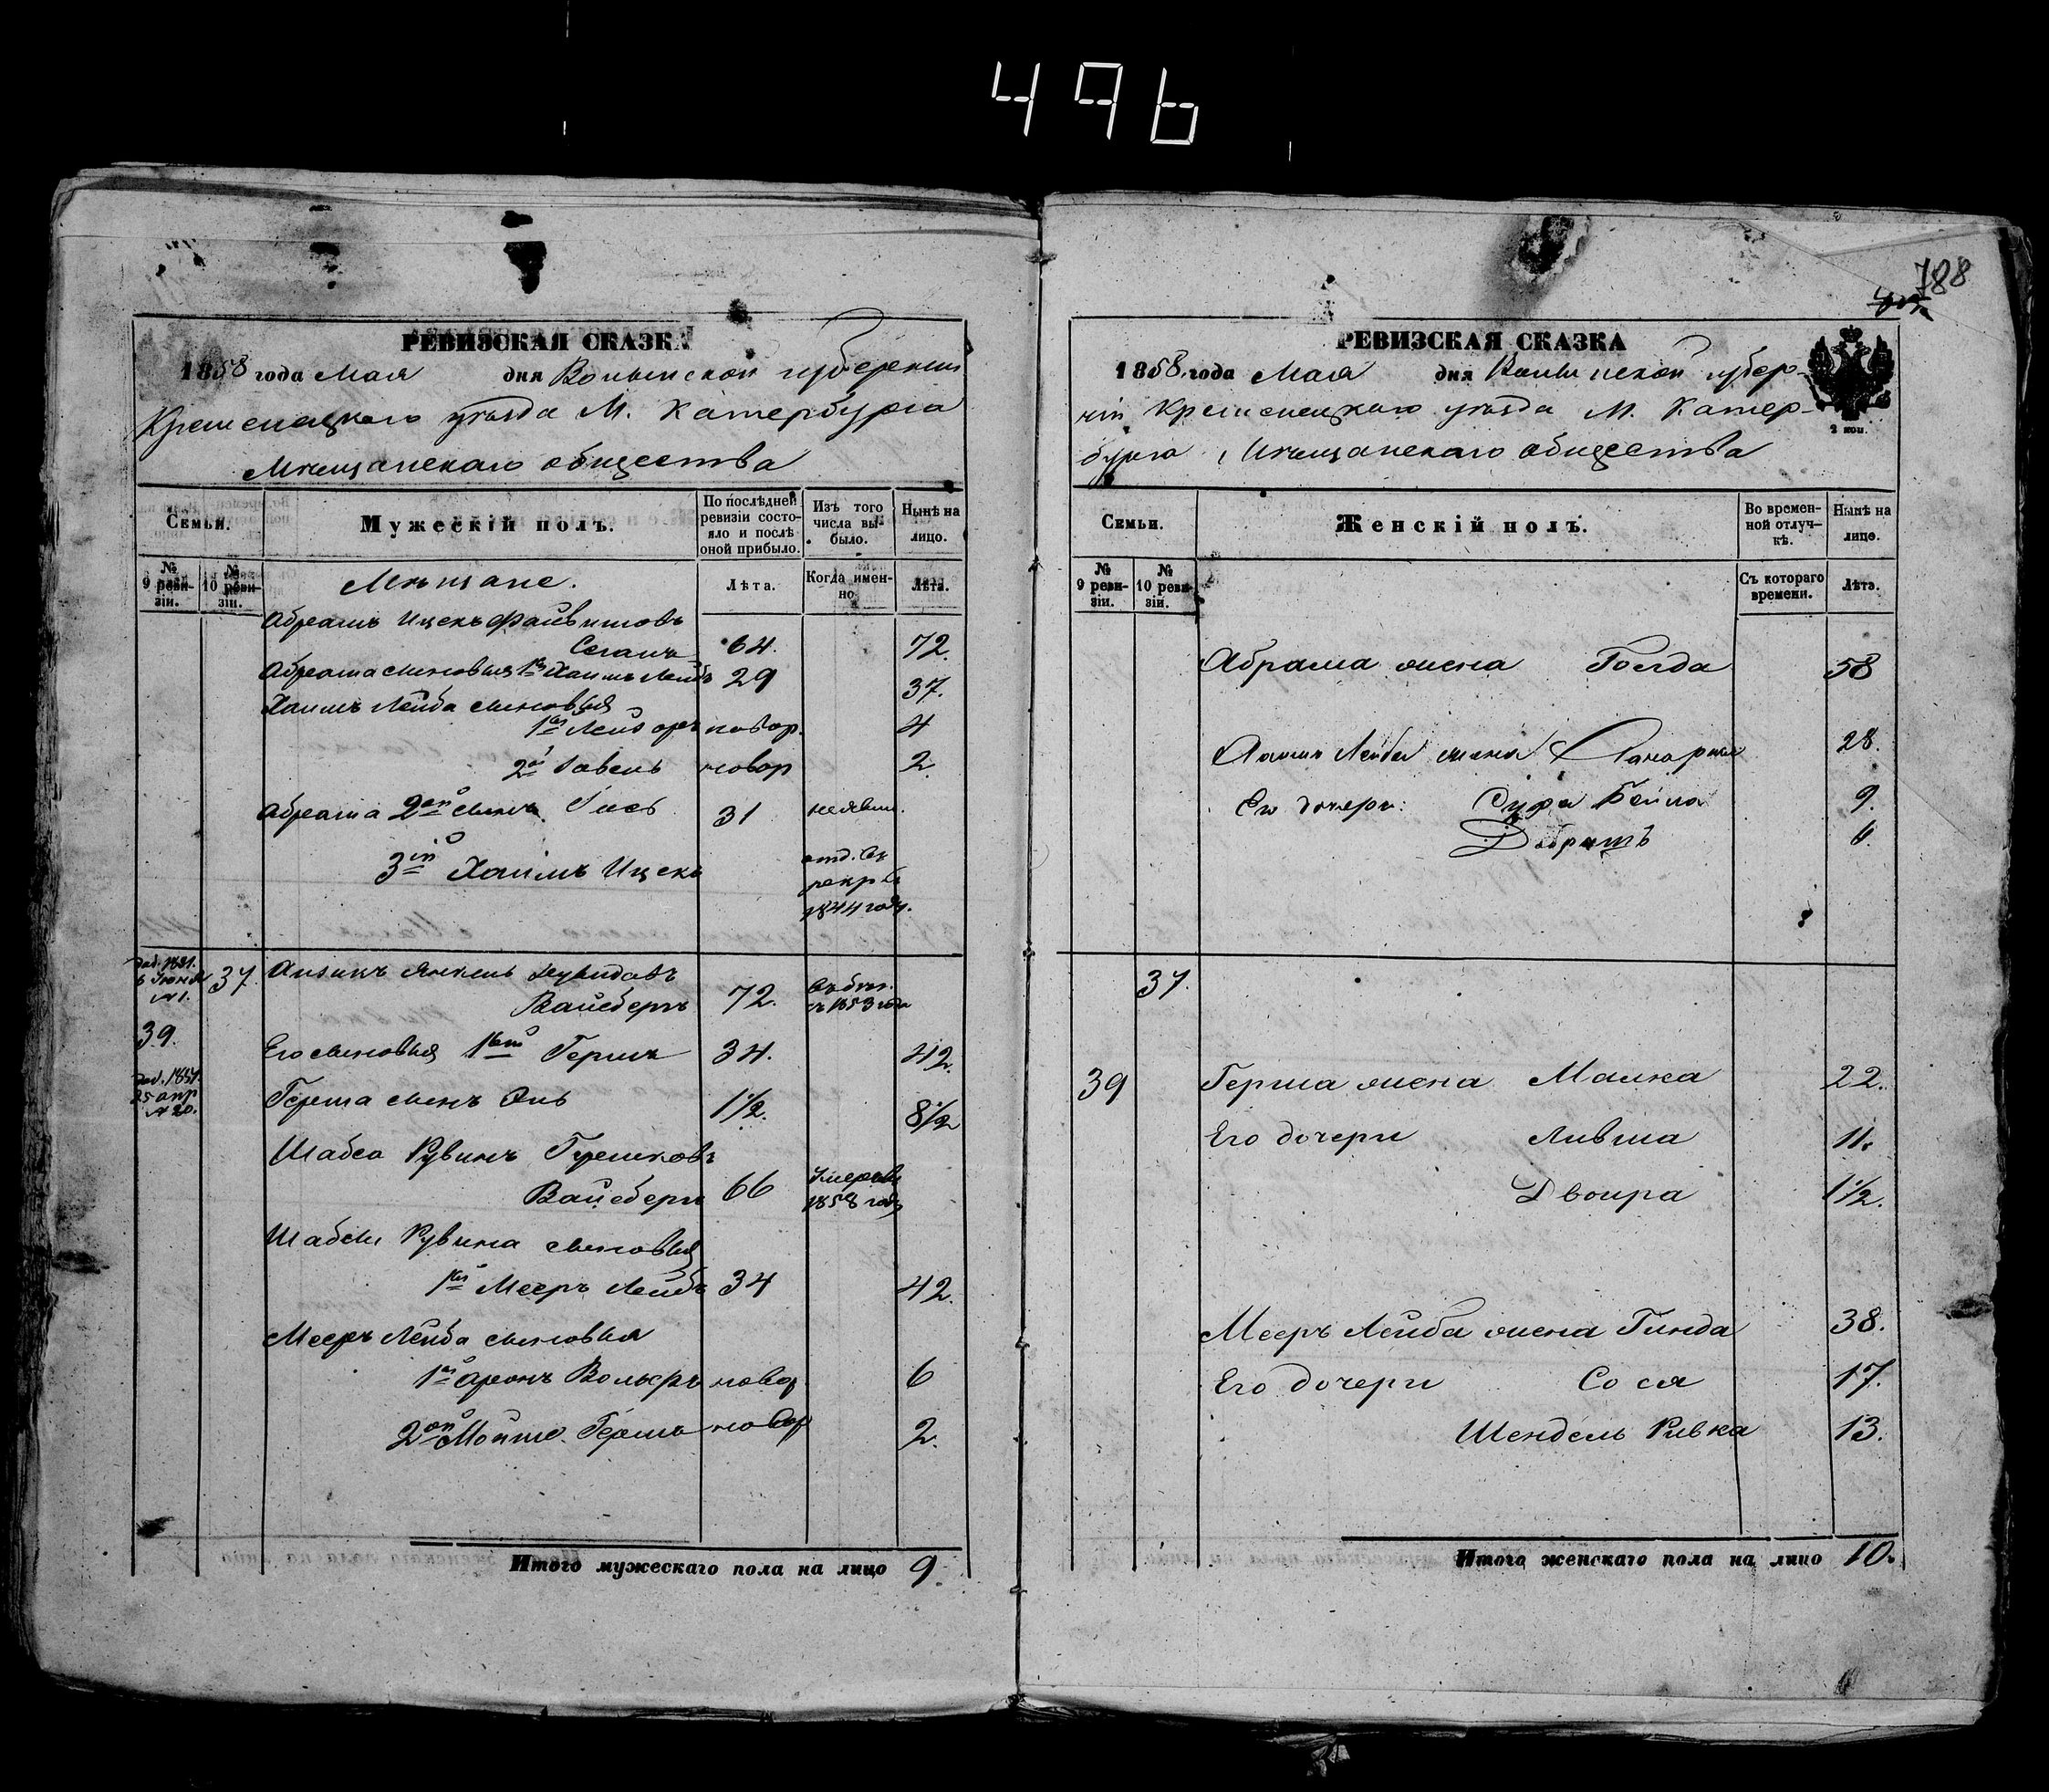 496
788
РЕВИЗСКАЯ СКАЗКА
1858 года Мая дня Волынской губернии
Кременецкаго уезда М. Катербурга
Мещанскаго общества
Семьи.
Мужескій полъ.
По послѣдней ревизіи состояло и послѣ оной прибыло.
Изъ того числа выбыло.
Нынѣ на лицо.
№ 9 ревизіи.
№ 10 ревизіи.
Мещане.
Лѣта.
Когда именно
Лѣта.
Абрамъ Ицекъ Файвишовъ
64. 72.
Абрама сыновья 1й Хаимъ Лейба 29 37.
Хаимъ Лейба сыновья
1й Лейзоръ новор. 4
2й новор 2
Абрама 2ой сынъ 31 неявл.
3ій Хаимъ Ицекъ отд. въ
рекр. въ
1844 году.
доп. 1851. 6 Июня № 1.
37 Айзикъ Янкель
Вайсбергъ 72. въ бѣг. съ 1853 года
39.
Его сыновья 1ый Гершъ 34. 42.
доп. 1857. 25 апр № 20.
Герша сынъ 1 1/2. 8 1/2
Шабса Рувинъ Гершковъ
Вайсбергъ 66 Умеръ въ 1858 году
Шабсы Рувина сыновья
1й Мееръ Лейба 34 42.
Мееръ Лейба сыновья
1й Аронъ Вольфъ новор 6
2ой Мойше Гершъ новор 2.
Итого мужескаго пола на лицо 9.
РЕВИЗСКАЯ СКАЗКА
1858 года Мая дня Волынской губер-
ніи Кременецкаго уезда М. Катер-
бурга Мещанскаго общества
2 коп.
Семьи.
Женскій полъ.
Во временной отлучкѣ.
Нынѣ на лицо.
№ 9 ревизіи.
№ 10 ревизіи.
Съ котораго времени.
Лѣта.
Абрама жена Голда 58
Хаимъ Лейба жена 28.
Его дочери: Сура Бейла 9.
Добришъ 6.
37.
39 Герша жена Малка 22.
Его дочери Ливша 11.
Двойра 1 1/2.
Мееръ Лейба жена Гинда 38.
Его дочери Сося 17.
Шендель Ривка 13.
Итого женскаго пола на лицо 10.